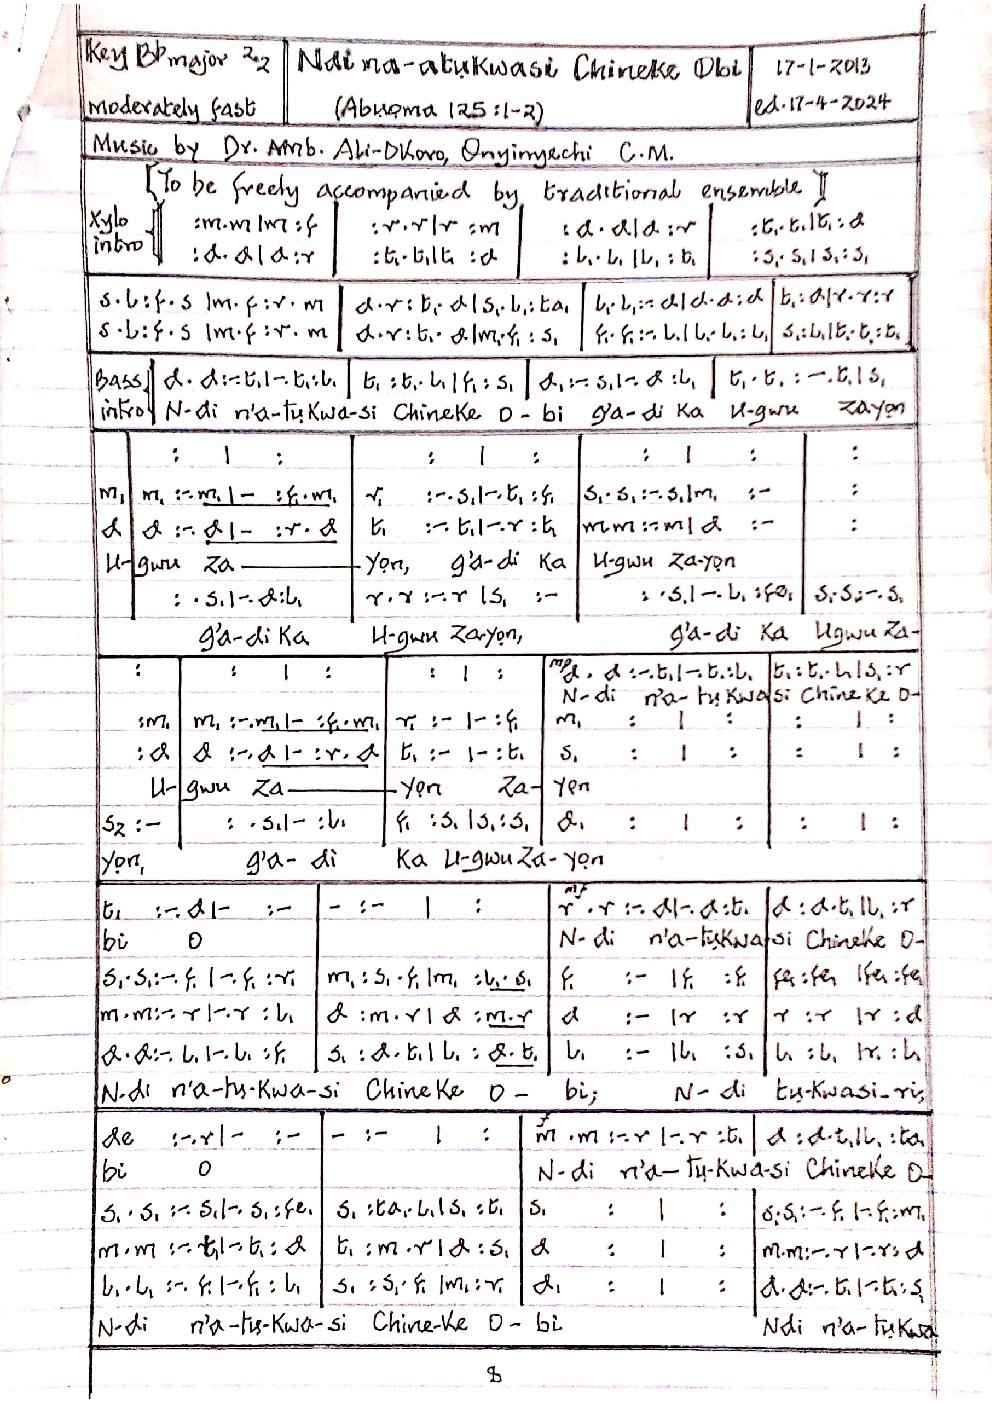 Key Bb major 2/2 Ndi na-atụkwasi Chineke Obi 17-1-2013
moderately fast (Abụọma 125:1-2) ed. 17-4-2024
Music by Dr. Amb. Ali-Okoro, Onyinyechi C.M.
[To be freely accompanied by traditional ensemble]
Xylo intro :m.m|m:f | :r.r|r:m | :d.d|d:r | :t₁.t₁|t₁:d
:d.d|d:r | :t₁.t₁|t₁:d | :l₁.l₁|l₁:t₁ | :s₁.s₁|s₁:s₁
s.l:f.s|m.f:r.m | d.r:t₁.d|s₁.l₁:ta₁ | l₁.l₁:-.d|d.d:d | t₁:d|r.r:r
s.l:f.s|m.f:r.m | d.r:t₁.d|m₁.f₁:s₁ | f₁.f₁:-.l₁|l₁.l₁:l₁ | s₁:l₁|t₁.t₁:t₁
Bass intro d.d:-.t₁|-.t₁:l₁ | t₁:t₁.l₁|f₁:s₁ | d₁:-.s₁|-.d:l₁ | t₁.t₁:-.t₁|s₁
N-di n'a-tụkwa-si Chineke O-bi g'a-di ka U-gwu Zayọn
: | : | : | : | : | : | :
m₁ | m₁:-.m₁|-:f₁.m₁ | r₁:-.s₁|-.t₁:f₁ | s₁.s₁:-.s₁|m₁:- | :
d | d:-.d|-:r.d | t₁:-.t₁|-.r:t₁ | m.m:-.m|d:- | :
U-gwu Za-yọn, g'a-di ka U-gwu Za-yọn
:.s₁|-.d:l₁ | r.r:-.r|s₁:- | :.s₁|-.l₁:fe₁ | s₁.s₁:-.s₁
g'a-di ka U-gwu Za-yọn, g'a-di ka Ugwu Za-
: | : | : | : | : | mp d.d:-.t₁|-.t₁:l₁ | t₁:t₁.l₁|s₁:r
N-di n'a-tụkwasi Chineke O-
:m₁ | m₁:-.m₁|-:f₁.m₁ | r₁:-|-:f₁ | m₁ : | : | : | :
:d | d:-.d|-:r.d | t₁:-|-:t₁ | s₁ : | : | : | :
U-gwu Za-yọn Za-yọn
s₂:- | :.s₁|-:l₁ | f₁:s₁|s₁:s₁ | d₁ : | : | : | :
yọn, g'a-di ka U-gwu Za-yọn
t₁:-.d|-:- | -:-| : | mf r.r:-.d|-.d:t₁ | d:d.t₁|l₁:r
bi O N-di n'a-tụkwasi Chineke O-
s₁.s₁:-.f₁|-.f₁:r₁ | m₁:s₁.f₁|m₁:l₁.s₁ | f₁:-|f₁:f₁ | fe₁:fe₁|fe₁:fe₁
m.m:-.r|-.r:l₁ | d:m.r|d:m.r | d:-|r:r | r:r|r:d
d.d:-.l₁|-.l₁:f₁ | s₁:d.t₁|l₁:d.t₁ | l₁:-|l₁:s₁ | l₁:l₁|r₁:l₁
N-di n'a-tụ-kwa-si Chineke O-bi; N-di tụ-kwasi-ri;
de:-.r|-:- | -:-| : | f m.m:-.r|-.r:t₁ | d:d.t₁|l₁:ta₁
bi O N-di n'a-tụ-kwa-si Chineke O-
s₁.s₁:-.s₁|-.s₁:fe₁ | s₁:ta₁.l₁|s₁:t₁ | s₁ : | : | s₁.s₁:-.f₁|-.f₁:m₁
m.m:-.t₁|-.t₁:d | t₁:m.r|d:s₁ | d : | : | m.m:-.r|-.r:d
l₁.l₁:-.f₁|-.f₁:l₁ | s₁:s₁.f₁|m₁:r₁ | d₁ : | : | d.d:-.t₁|-.t₁:s₁
N-di n'a-tụ-kwa-si Chine-ke O-bi Ndi n'a-tụkwa